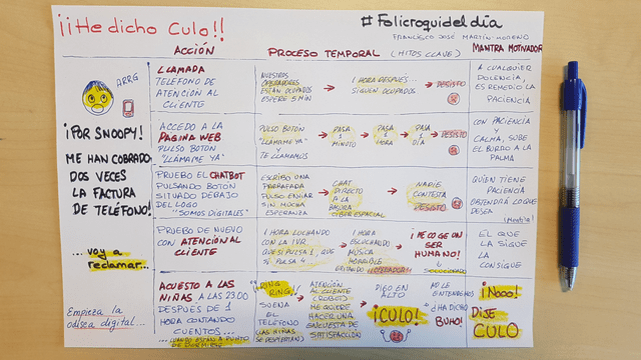 ¡¡He dicho Culo!!
#Folicroquideldía
FRANCISCO JOSÉ MARTÍN-MORENO
ACCIÓN
PROCESO TEMPORAL (HITOS CLAVE)
MANTRA MOTIVADOR
ARRG
¡POR SNOOPY!
ME HAN COBRADO
DOS VECES
LA FACTURA
DE TELÉFONO!
...voy a
reclamar...
Empieza la
odisea digital...
LLAMADA
TELÉFONO DE
ATENCIÓN AL
CLIENTE
NUESTROS
OPERADORES
ESTÁN OCUPADOS
ESPERE 5 MIN
1 HORA DESPUÉS...
SIGUEN OCUPADOS
DESISTO
A CUALQUIER
DOLENCIA,
ES REMEDIO LA
PACIENCIA
ACCEDO A LA
PÁGINA WEB
PULSO BOTÓN
"LLÁMAME YA"
PULSO BOTÓN
"LLÁMAME YA"
Y
TE LLAMAMOS
PASA
1
MINUTO
PASA
1
HORA
PASA
1 DÍA
DESISTO
CON PACIENCIA
Y CALMA, SUBE
EL BURRO A LA
PALMA
PRUEBO EL CHATBOT
PULSANDO BOTÓN
SITUADO DEBAJO
DEL LOGO
"SOMOS DIGITALES"
ESCRIBO UNA
PARRAFADA
PULSO ENVIAR
SIN MUCHA
ESPERANZA
CHAT
DIRECTO
A LA
BASURA
CIBERESPACIAL
NADIE
CONTESTA
DESISTO
QUIEN TIENE
PACIENCIA
OBTENDRÁ LO QUE
DESEA
(Mentira)
PRUEBO DE NUEVO
CON ATENCIÓN AL
CLIENTE
1 HORA LUCHANDO
CON LA IVR
QUE SI PULSA 1, QUE
SI PULSA 4...
1 HORA
ESCUCHANDO
MÚSICA
HORRIBLE
¡ME COGE UN
SER
HUMANO!
SOLUCIONADO
EL QUE
LA SIGUE
LA
CONSIGUE
ACUESTO A LAS
NIÑAS A LAS 23:00
DESPUÉS DE 1
HORA CONTANDO
CUENTOS...
...CUANDO ESTÁN A PUNTO
DE DORMIRSE
¡RING
RING!
SUENA
EL
TELÉFONO
(LAS NIÑAS
SE DESPIERTAN)
ATENCIÓN
AL CLIENTE
(ROBOT)
ME QUIERE
HACER UNA
ENCUESTA DE
SATISFACCIÓN
DIGO EN
ALTO
¡CULO!
NO LE
ENTENDEMOS
¿HA DICHO
BUHO?
¡Nooo!
DIJE
CULO